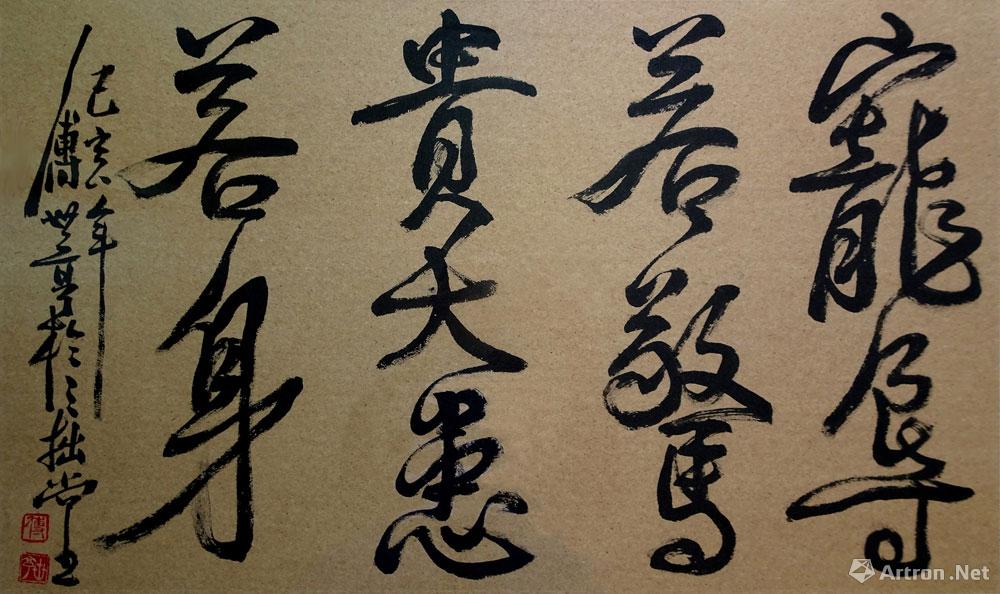 寵辱
若驚
貴大患
若身
己亥年
傅世亨於三拙堂
Artron.Net